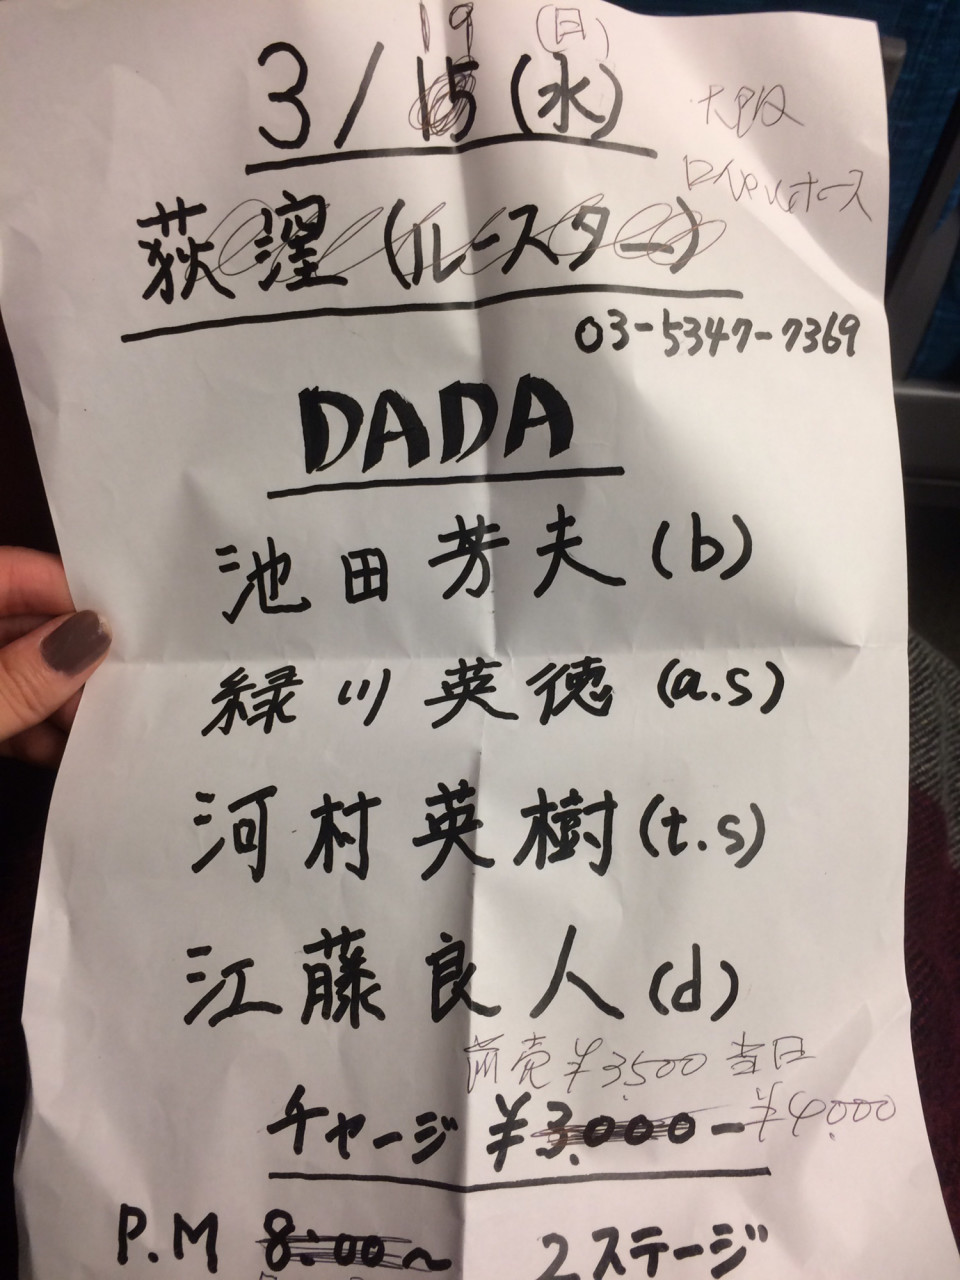 19 (日)
3/15 (水)
大阪
ロイヤルホース
荻窪 (ルースター)
03-5347-7369
DADA
池田芳夫 (b)
緑川英徳 (a.s)
河村英樹 (t.s)
江藤良人 (d)
前売¥3500 当日
¥4000
チャージ ¥3.000-
P.M 8:00~ 2ステージ